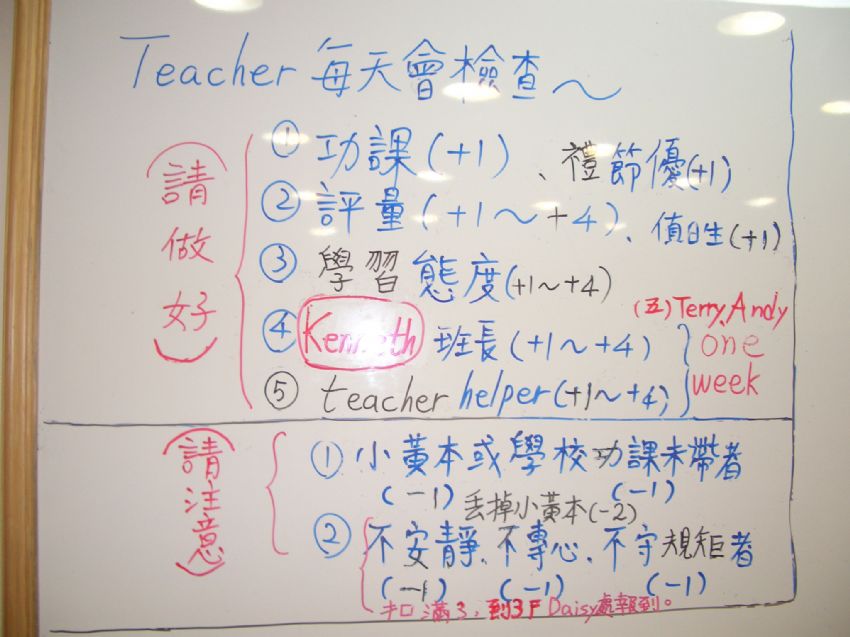 Teacher 每天會檢查～
(請做好)
① 功課(+1)、禮節優(+1)
② 評量(+1～+4)、值日生(+1)
③ 學習態度(+1～+4)
(五)Terry、Andy
④ Kenneth 班長(+1～+4)
⑤ teacher helper(+1～+4)
one
week
(請注意)
① 小黃本或學校功課未帶者
(-1) (-1)
丟掉小黃本(-2)
② 不安靜、不專心、不守規矩者
(-1) (-1) (-1)
扣滿3，到3F Daisy處報到。